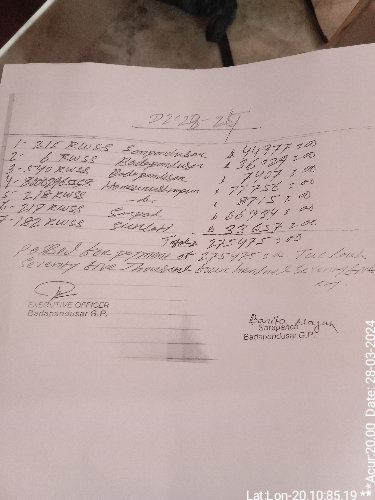 Dt 28-3-24
1- 215 RWSS Sanpandusar ₹ 44977=00
2- 6 RWSS Badapandusar ₹ 36029=00
3- 540 RWSS Badapandusar ₹ 7407=00
₹ 77756=00
5- 218 RWSS -do- ₹ 8715=00
217 RWSS ₹ 66934=00
7- 182 RWSS ₹ 33657=00
Total 275475=00
Passed for payment of 275475=00 Two Lakh
Seventy five Thousand four hundred Seventy five
only
EXECUTIVE OFFICER
Badapandusar G.P.
Sarapanch
Badapandusar G.P.
Lat Lon-20.10:85.19 ***Acur:20.00 Date: 28-03-2024